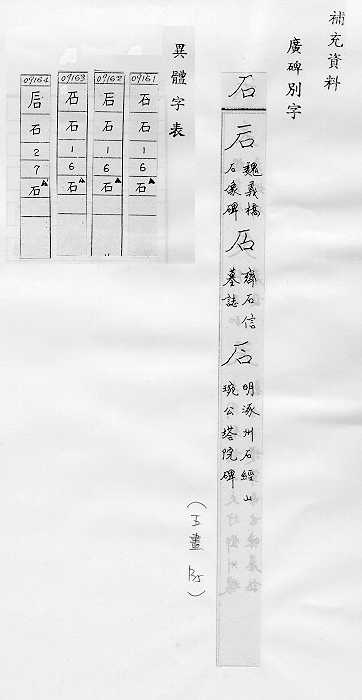 補充資料
廣碑別字
石
后
魏義橋
石像碑
石
齊石信
墓誌
后
明涿州石經山
琬公塔院碑
(五畫
異體字表
09161
石
1
6
石
09162
石
1
6
石
09163
石
1
6
石
09164
石
2
7
石